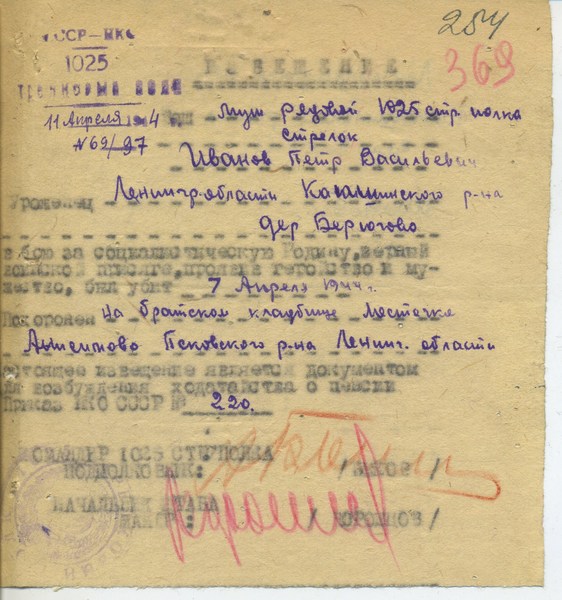 254
369
СССР-НКО
1025
Стрелковый полк
11 Апреля 1944 г.
№ 69/97
ИЗВЕЩЕНИЕ
Ваш муж рядовой 1025 стр полка
стрелок
Иванов Петр Васильевич
Уроженец Ленингр-области Кашинского р-на
дер Берюгово
в бою за социалистическую Родину, верный
воинской присяге, проявив геройство и му-
жество, был убит 7 Апреля 1944 г.
Похоронен на братском кладбище местечке
Анисимово Псковского р-на Ленинг. области
Настоящее извещение является документом
для возбуждения ходатайства о пенсии
Приказ НКО СССР № 220.
КОМАНДИР 1025 СТР ПОЛКА
ПОДПОЛКОВНИК:
НАЧАЛЬНИК ШТАБА
МАЙОР: